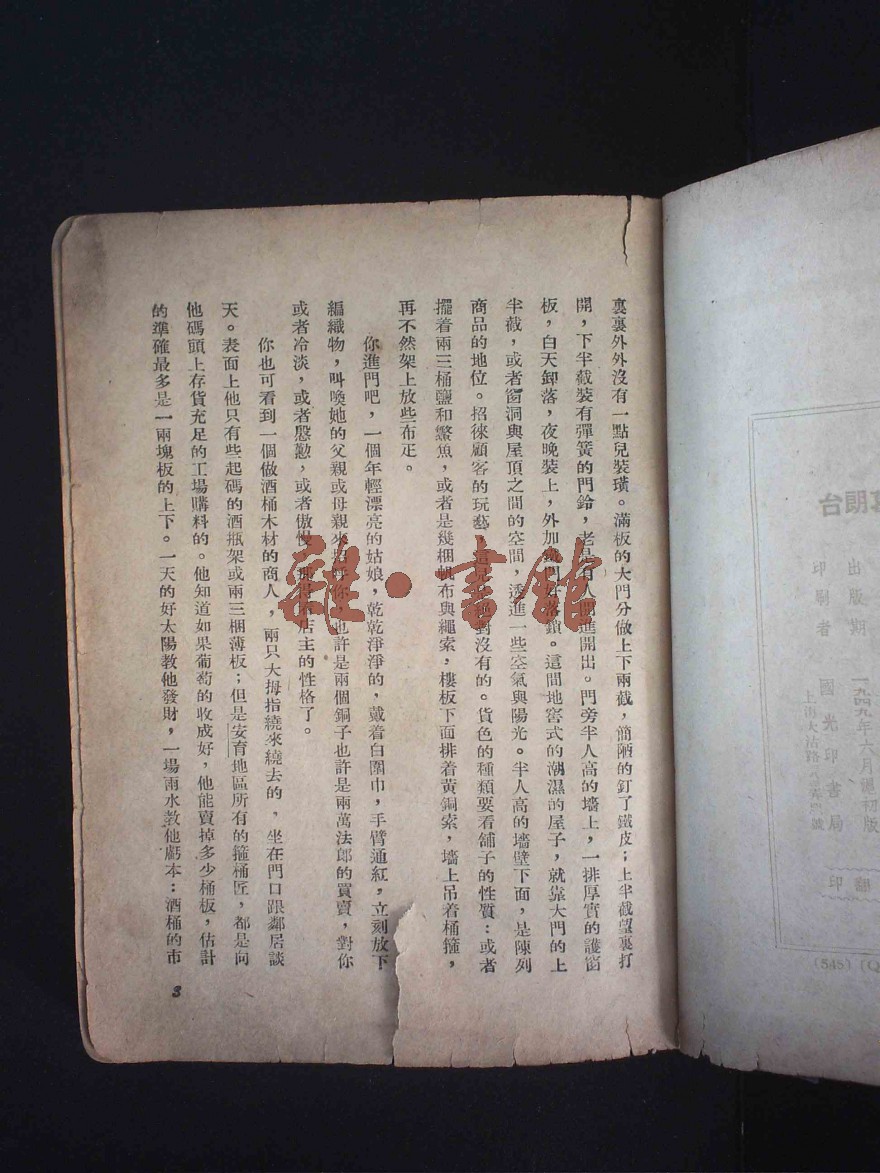 裏裏外外沒有一點兒裝璜。滿板的大門分做上下兩截，簡陋的釘了鐵皮；上半截望裏打
開，下半截裝有彈簧的門鈴，老是有人開進開出。門旁半人高的墻上，一排厚實的護窗
板，白天卸落，夜晚裝上，外加鐵閂好落鎖。這間地窖式的潮濕的屋子，就靠大門的上
半截，或者窗洞與屋頂之間的空間，透進一些空氣與陽光。半人高的墻壁下面，是陳列
商品的地位。招徠顧客的玩藝，這兒是絕對沒有的。貨色的種類要看舖子的性質：或者
擺着兩三桶鹽和鱉魚，或者是幾梱帆布與繩索，樓板下面排着黃銅索，墻上吊着桶箍，
再不然架上放些布疋。
你進門吧，一個年輕漂亮的姑娘，乾乾淨淨的，戴着白圍巾，手臂通紅，立刻放下
編織物，叫喚她的父親或母親來招呼你，也許是兩個銅子也許是兩萬法郎的買賣，對你
或者冷淡，或者慇懃，或者傲慢，店主的性格了。
你也可看到一個做酒桶木材的商人，兩只大拇指繞來繞去的，坐在門口跟鄰居談
天。表面上他只有些起碼的酒瓶架或兩三梱薄板；但是安育地區所有的箍桶匠，都是向
他碼頭上存貨充足的工場購料的。他知道如果葡萄的收成好，他能賣掉多少桶板，估計
的準確最多是一兩塊板的上下。一天的好太陽教他發財，一場雨水教他虧本：酒桶的市
3
雜·書館
台朗
出版期 一九四九年六月
初版
印刷者 國光印書局
上海大沽路
翻
印
(545)